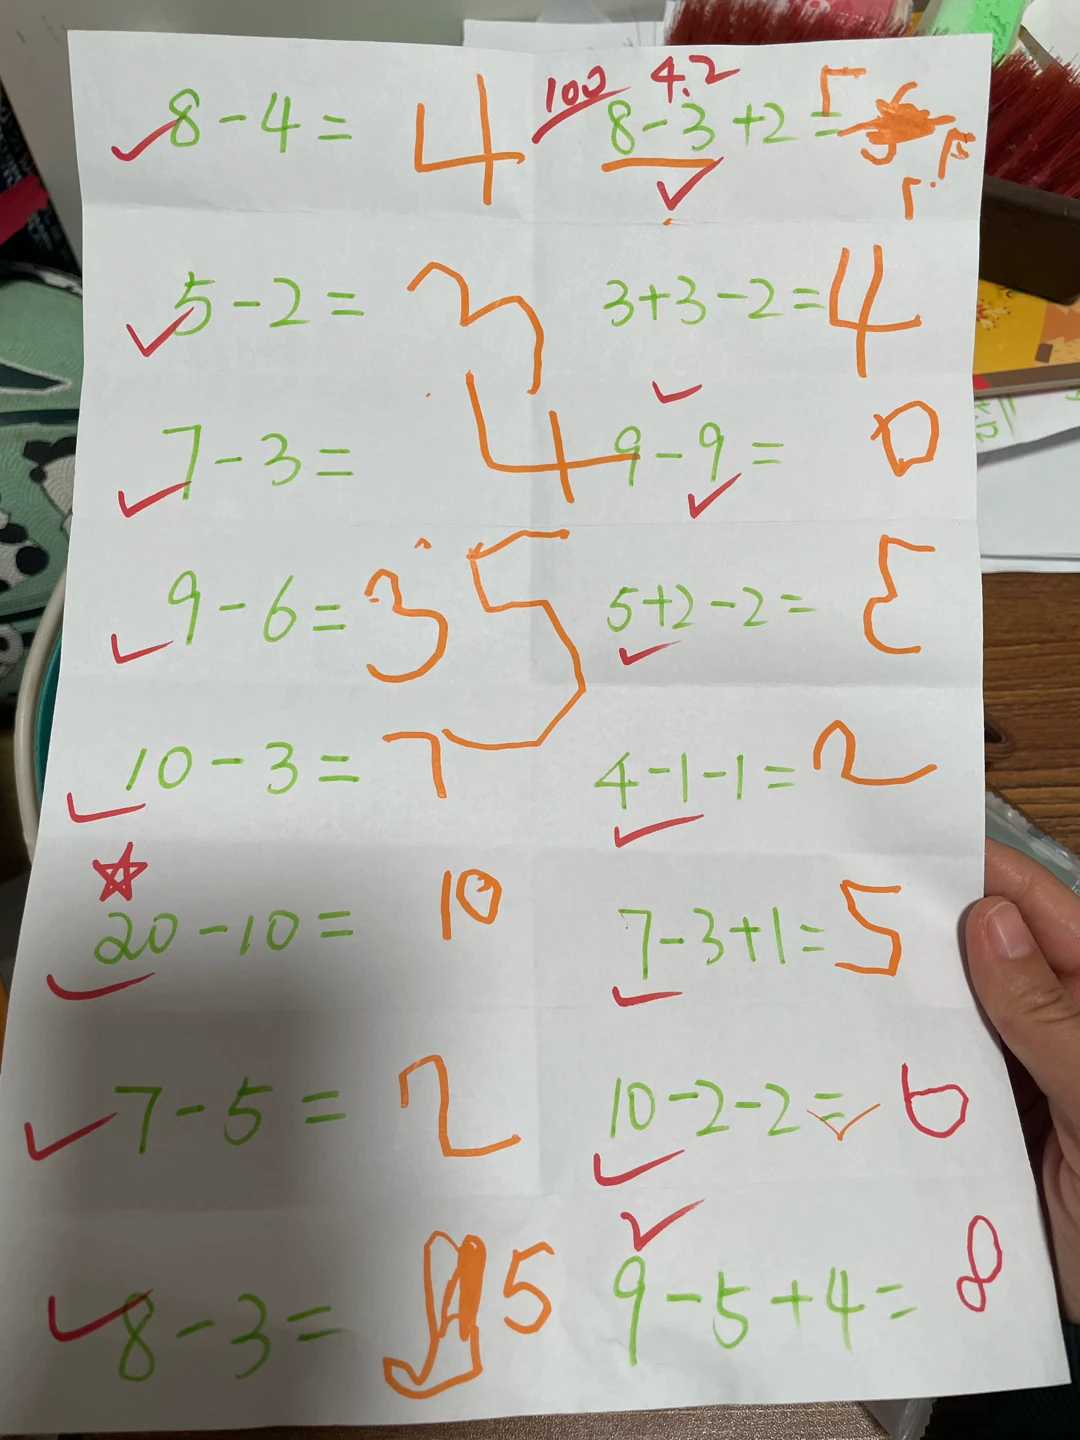 100 4.2
8-4= 4
8-3+2=
5-2= 3
3+3-2=4
7-3= 4
9-9= 0
9-6=3 5
5+2-2=
10-3= 7
4-1-1= 2
20-10= 10
7-3+1=5
7-5= 2
10-2-2= 6
8-3= 5
9-5+4= 8